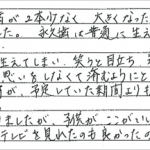 歯が2本少なく 大きくなった
た。永久歯は普通に生え
生えてしまい、笑うと目立ち、
思いをしなくて済むようにと
が、予定していた期間より
ましたが、子供がここがいい
テレビを見れたのも良かったの